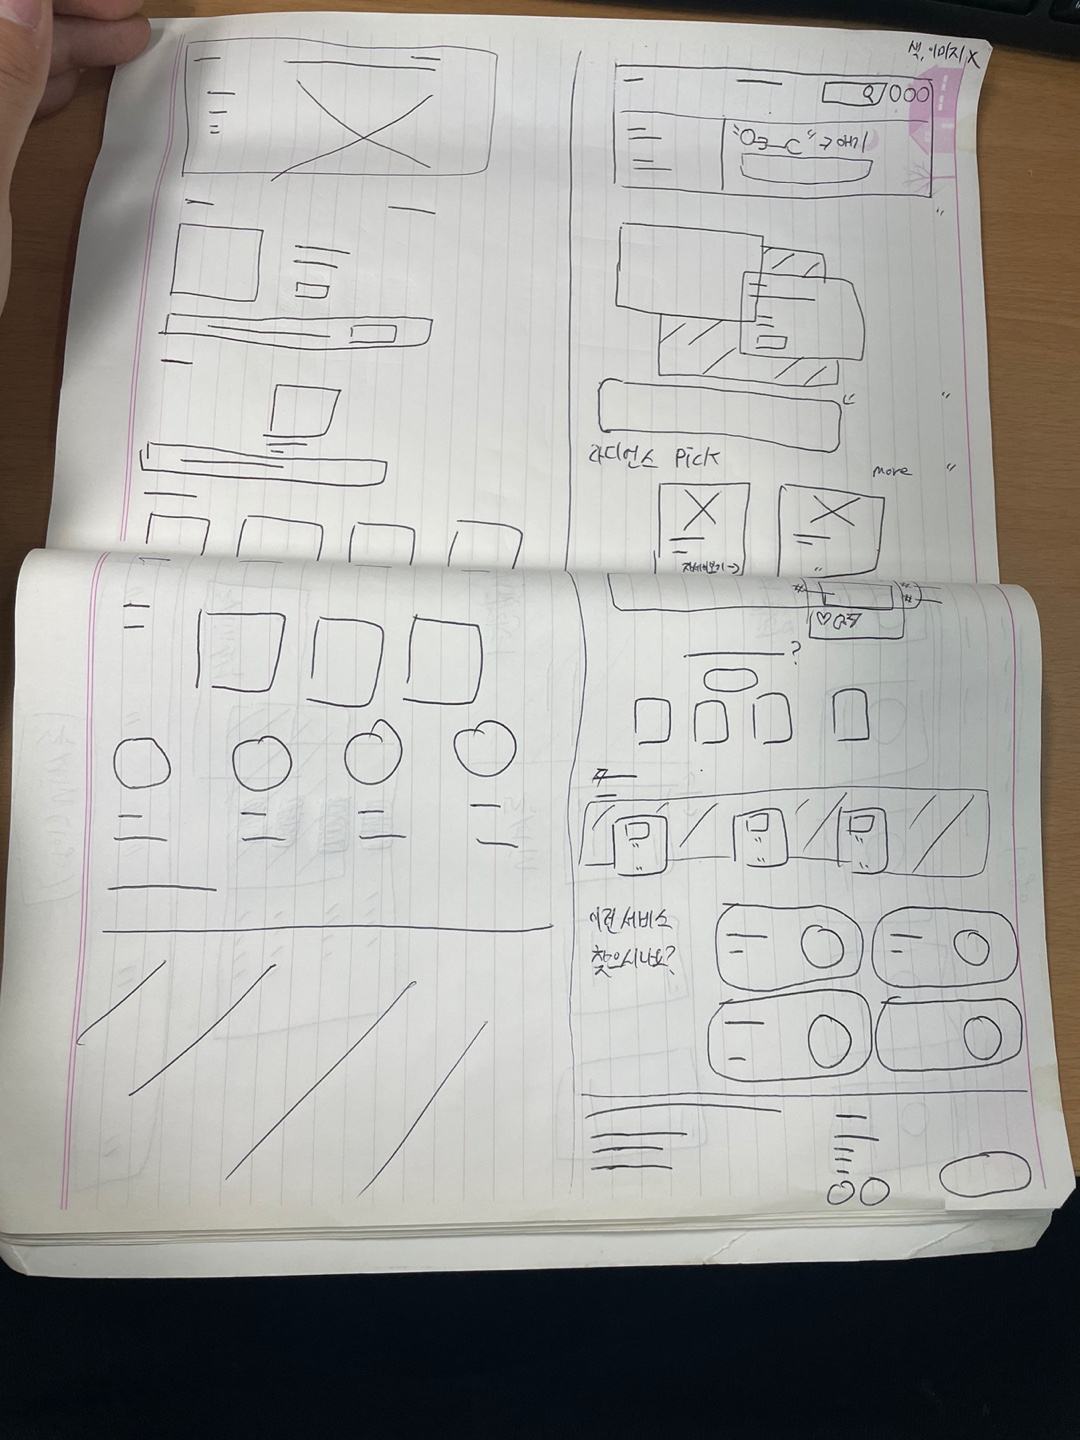 색, 이미지 X
라디언스 Pick
more
자세히보기 →
?
이런 서비스
찾으시나요?